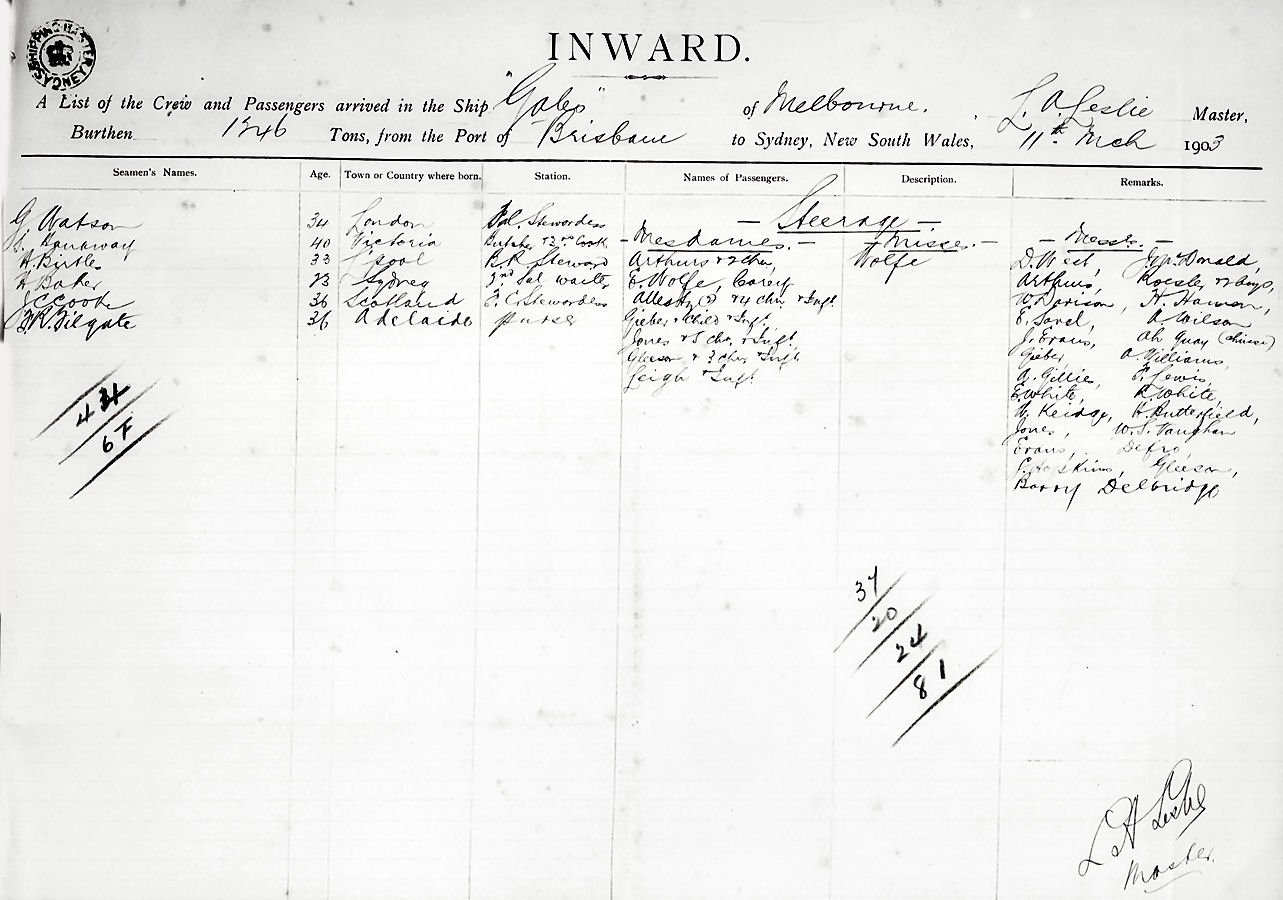 SHIPPING MASTER SYDNEY
INWARD.
A List of the Crew and Passengers arrived in the Ship "Gabo" of Melbourne. L. A. Leslie Master,
Burthen 1346 Tons, from the Port of Brisbane to Sydney, New South Wales, 11th Mch 1903
Seamen's Names. Age. Town or Country where born. Station. Names of Passengers. Description. Remarks.
— Steerage. —
G. Watson 34 London Stewardess
40 Victoria Butcher & 2nd Cook
A. Birtles 33 L'pool B.R. Steward
A. Baker 23 Sydney 2nd Sal. waiter
J C Cook 36 Scotland F. C. Stewardess
F. R. Filgate 36 Adelaide purser
— Mesdames. —
Arthurs & 2 chn,
E. Wolfe, Carey
& 4 chn. & Inft.
Gieber & Child & Inft.
Jones & 5 chn, & Inft.
Gleeson & 3 chn, & Inft
Leigh & Inft.
— Misses. —
Wolfe
— Messrs. —
D. West, Donald,
Arthurs, Roesler & 2 boys,
W. Davison, H. Hanson,
E. Sorel, A. Wilson
J. Evans, Ah Quay (chinese)
Gieber, A. Williams,
A. Gillies, F. Lewis,
E. White, R. White,
W. Keidge, H. Butterfield,
Jones, W. S. Vaughan
Evans, Defro,
Hopkins, Gleeson,
Barry Delbridge
43
67
37
20
24
81
L A Leslie
Master.